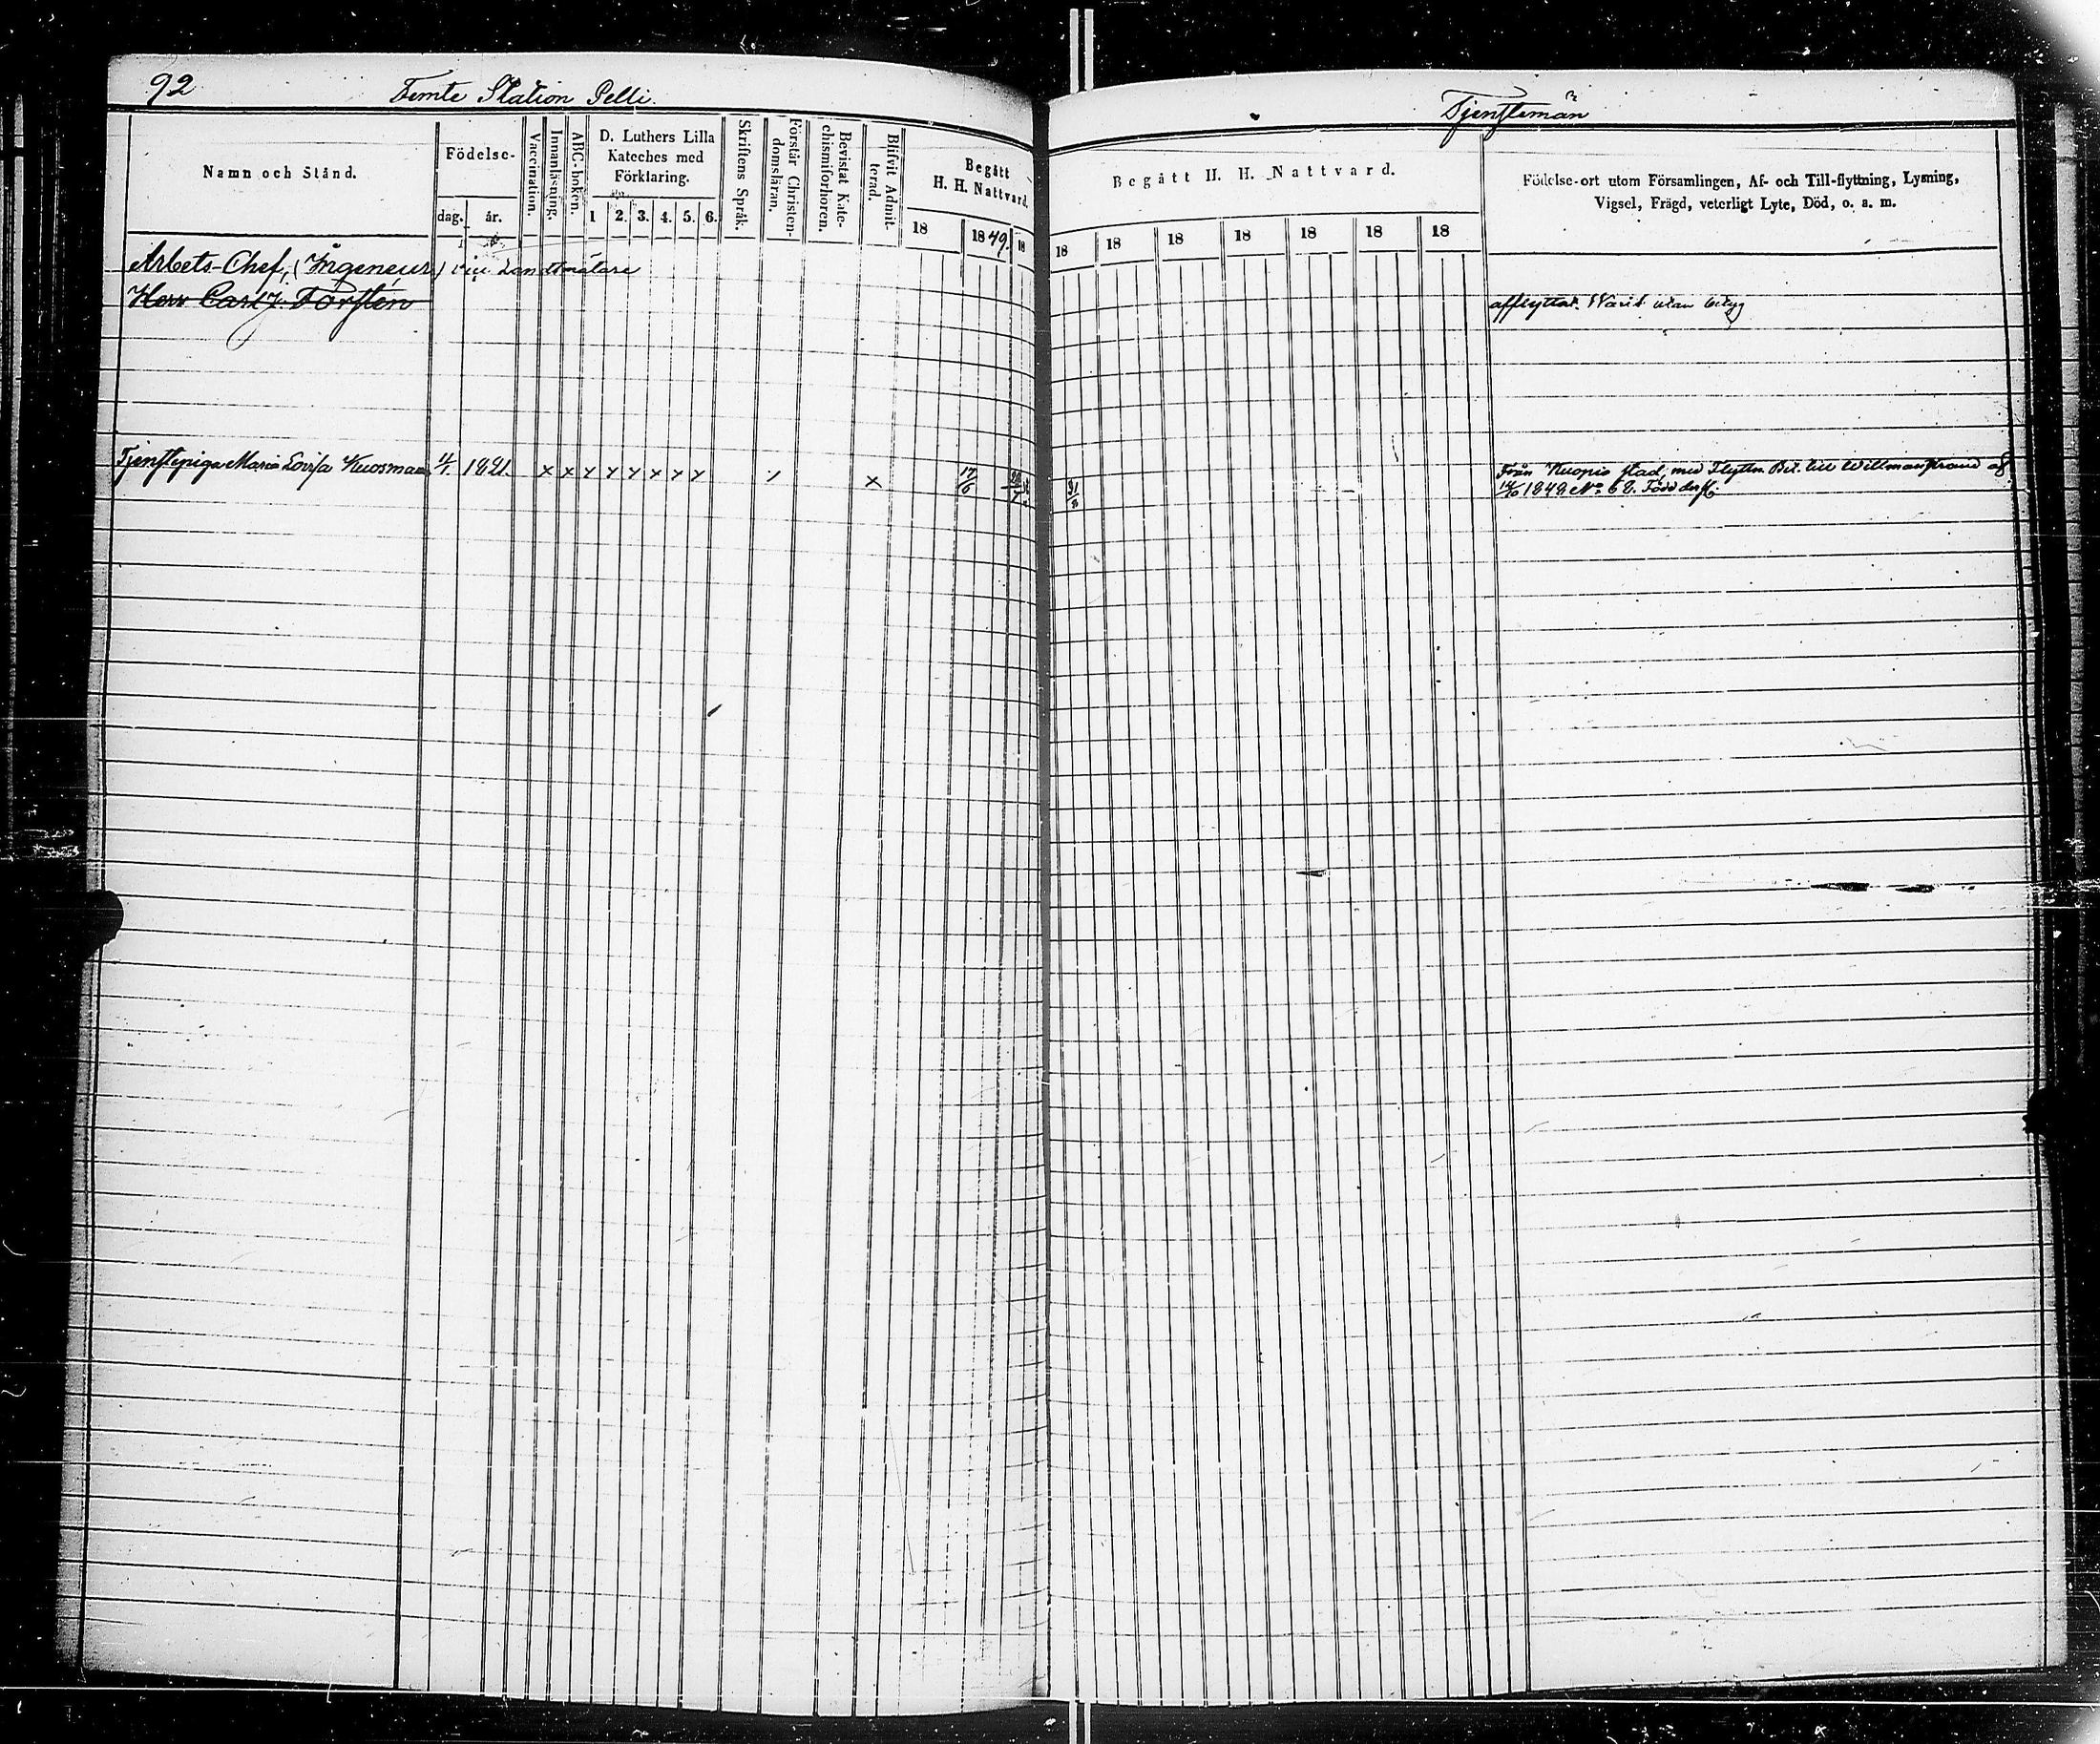 92
Femte Station Pelli.
Tjenstemän
Namn och Stånd.
Födelse-
dag. år.
Vaccination.
Innanläsning.
ABC-boken.
D. Luthers Lilla
Kateches med
Förklaring.
1 2. 3. 4. 5. 6.
Skriftens Språk.
Förstår Christen-
domsläran.
Bevistat Kate-
chismiförhören.
Blifvit Admit-
terad.
Begått
H. H. Nattvard.
18 1849. 18
Begått H. H. Nattvard.
18 18 18 18 18 18 18
Födelse-ort utom Församlingen, Af- och Till-flyttning, Lysning,
Vigsel, Frägd, veterligt Lyte, Död, o. s. m.
Arbets-Chef, (Ingeneur) vice Landtmätare
Herr Carl J. Forstén afflyttat. Warit utan betyg
Tjenstepiga Maria Lovisa Kuosmaa 1821. x x x x x x x x x 17/6 31/8
Från Kuopio stad med Flyttn. Bet. till Willmanstrand af
1848 No 68. Född ders.